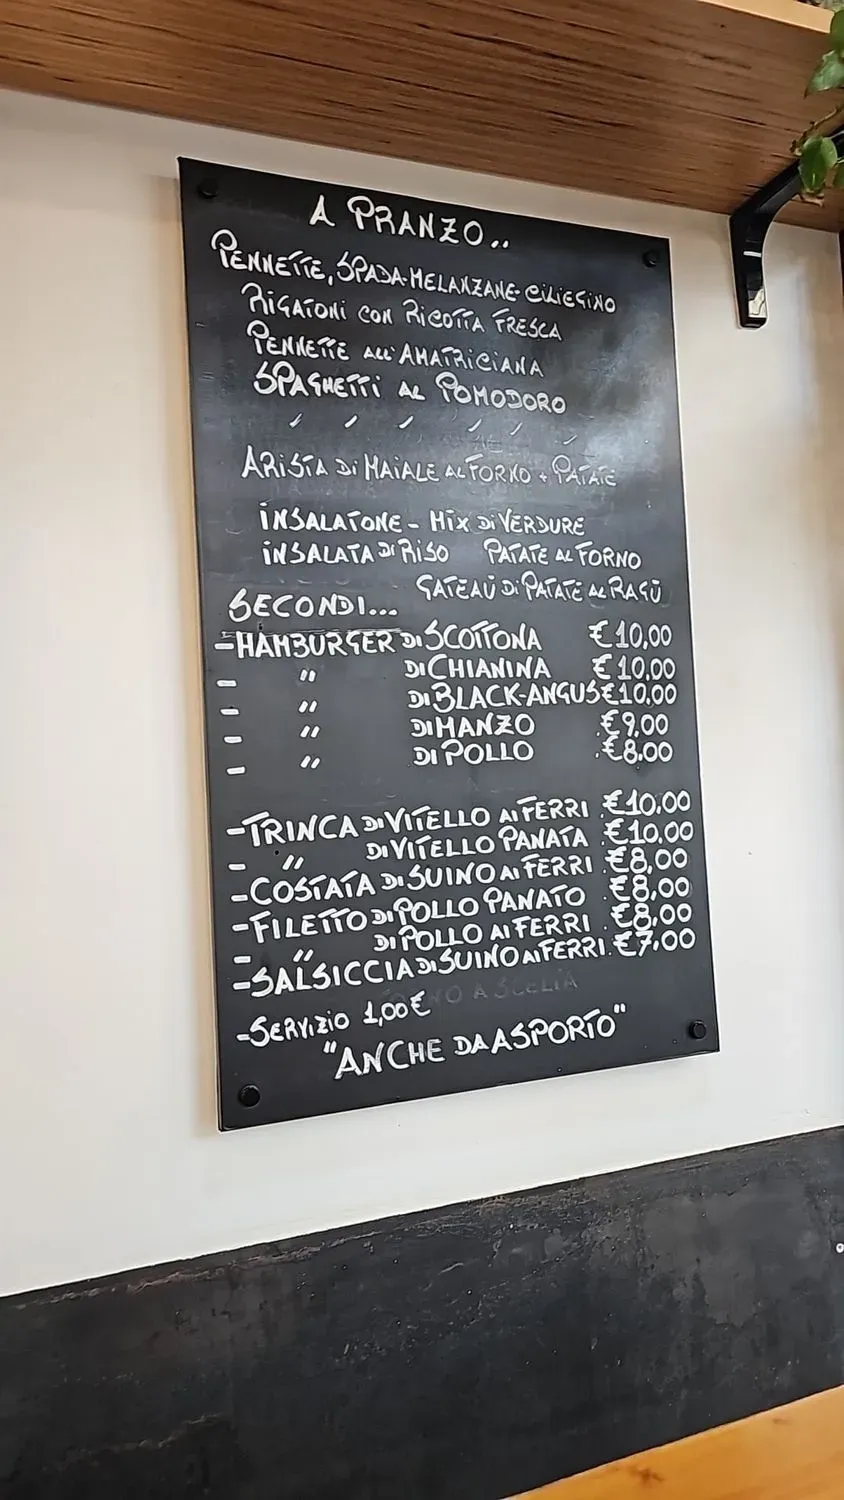 A PRANZO..
PENNETTE, SPADA-MELANZANE-CILIEGINO
RIGATONI CON RICOTTA FRESCA
PENNETTE ALL'AMATRICIANA
SPAGHETTI AL POMODORO
ARISTA DI MAIALE AL FORNO + PATATE
INSALATONE - MIX DI VERDURE
INSALATA DI RISO PATATE AL FORNO
GATEAÜ DI PATATE AL RAGÙ
SECONDI...
-HAMBURGER DI SCOTTONA €10,00
- " DI CHIANINA €10,00
- " DI BLACK-ANGUS €10,00
- " DI MANZO €9,00
- " DI POLLO €8.00
-TRINCA DI VITELLO AI FERRI €10,00
- " DI VITELLO PANATA €10,00
-COSTATA DI SUINO AI FERRI €8,00
-FILETTO DI POLLO PANATO €8,00
- " DI POLLO AI FERRI €8,00
-SALSICCIA DI SUINO AI FERRI €7,00
A SCELTA
-SERVIZIO 1,00€
"ANCHE DA ASPORTO"